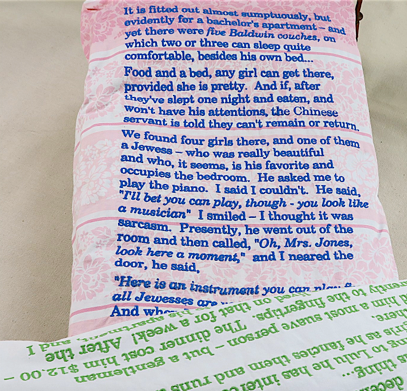 It is fitted out almost sumptuously, but
evidently for a bachelor's apartment – and
yet there were five Baldwin couches, on
which two or three can sleep quite
comfortable, besides his own bed...
Food and a bed, any girl can get there,
provided she is pretty. And if, after
they've slept one night and eaten, and
won't have his attentions, the Chinese
servant is told they can't remain or return.
We found four girls there, and one of them
a Jewess – who was really beautiful
and who, it seems, is his favorite and
occupies the bedroom. He asked me to
play the piano. I said I couldn't. He said,
"I'll bet you can play, though - you look like
a musician" I smiled – I thought it was
sarcasm. Presently, he went out of the
room and then called, "Oh, Mrs. Jones,
look here a moment," and I neared the
door, he said,
"Here is an instrument you can play
all Jewesses are
And
a gentleman
The dinner cost him $12.00 –
for a week! After the
most suave person – but
to the fingertips. The
to Lulu
as he fancies he is
him and runs